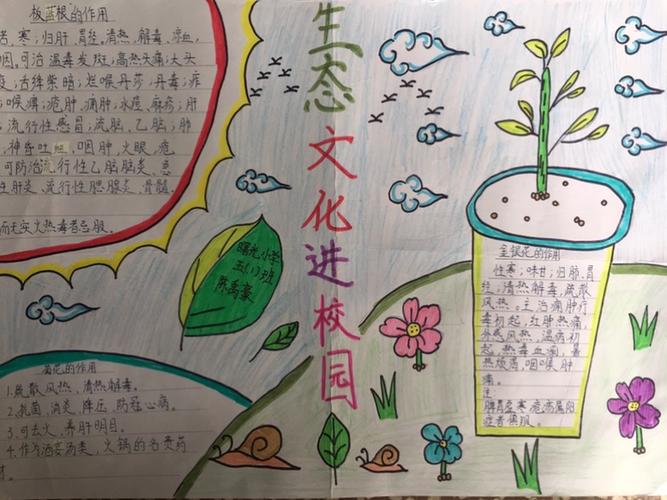 板蓝根的作用
苦,寒;归肝 胃经。清热,解毒,凉血,
咽。可治温毒发斑;高热头痛;大头
疫;舌绛紫暗;烂喉丹痧;丹毒;痄
;喉痹;疮肿,痈肿;水痘,麻疹;肝
;流行性感冒;流脑,乙脑;肺
,神昏吐血,咽肿,火眼,疮
可防治流行性乙脑脑炎、急
性肝炎、流行性腮腺炎、骨髓
而无实火热毒者忌服。
生态文化进校园
曙光小学
五(1)班
陈禹豪
菊花的作用
1.疏散风热、清热解毒。
2.抗菌、消炎、降压、防冠心病。
3.可去火、养肝明目。
4.作为汤类、火锅的名贵药
材。
金银花的作用
性寒;味甘;归肺、胃
经;清热解毒,疏散
风热。主治痈肿疔
毒初起,红肿热痛,
外感风热,温病初
起,热毒血痢,暑
热烦渴,咽喉肿
痛。
注
脾胃虚寒
症者慎服。